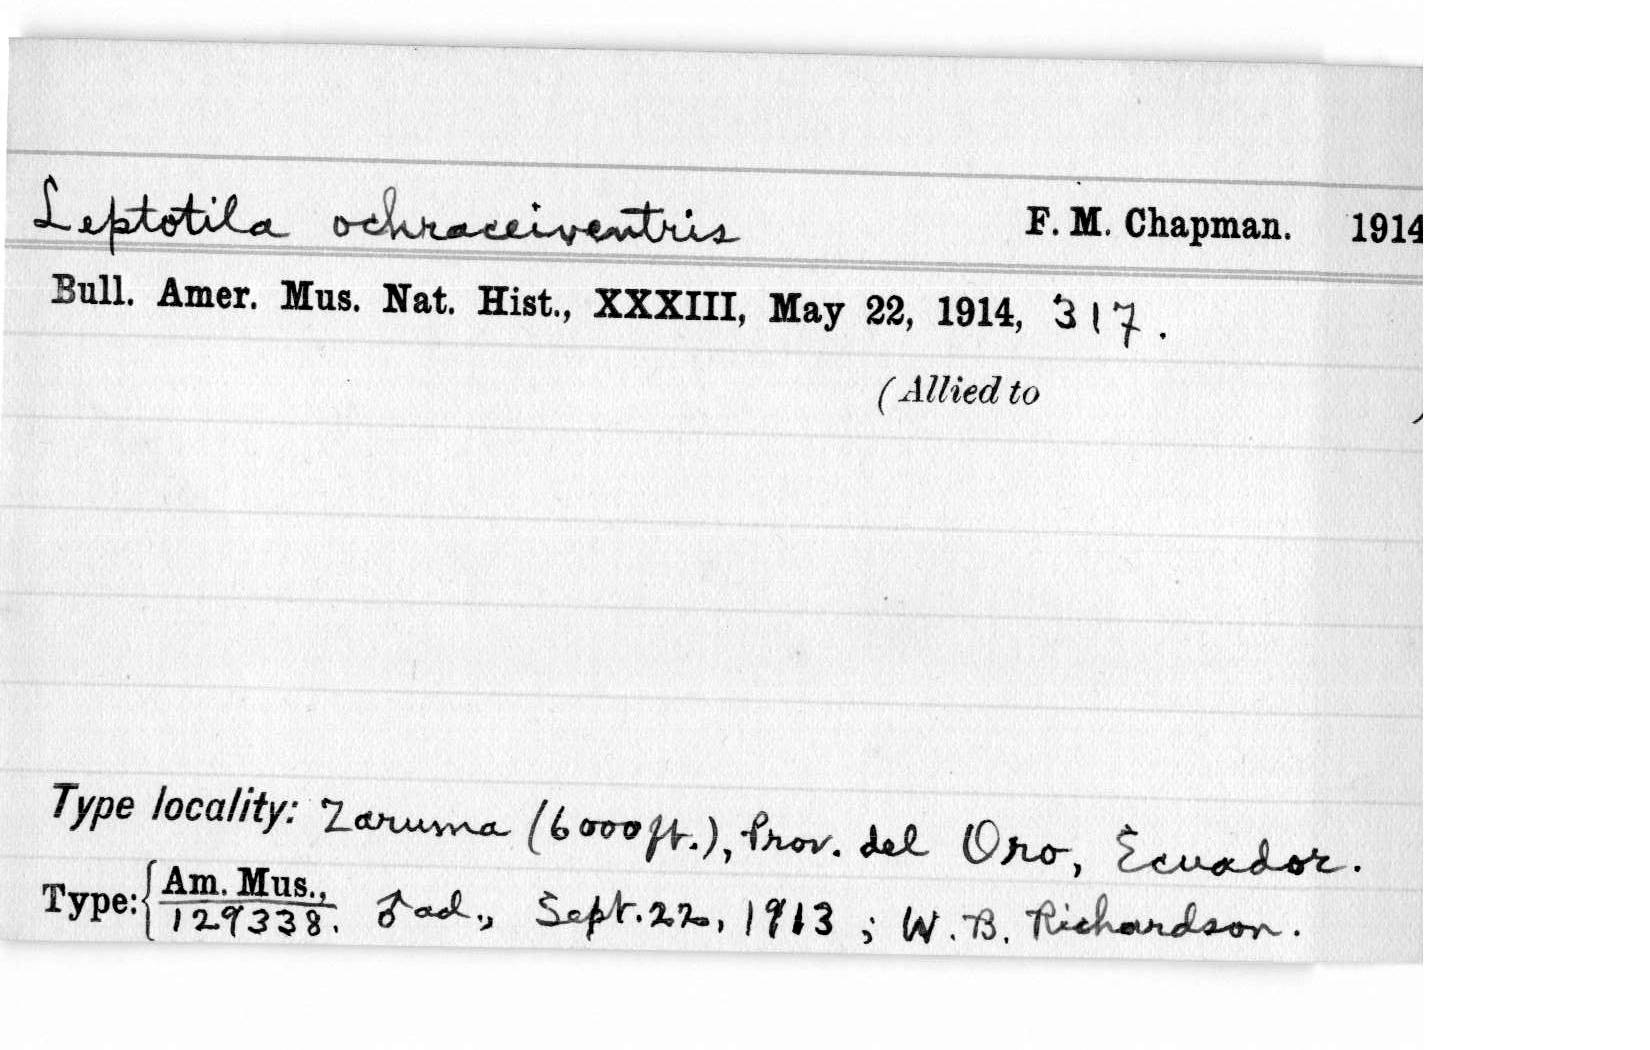 Leptotila ochraceiventris F. M. Chapman. 1914
Bull. Amer. Mus. Nat. Hist., XXXIII, May 22, 1914, 317.
(Allied to )
Type locality: Zaruma (6000 ft.), Prov. del Oro, Ecuador.
Type: { Am. Mus.,
129338. ♂ ad., Sept. 22, 1913 ; W. B. Richardson.